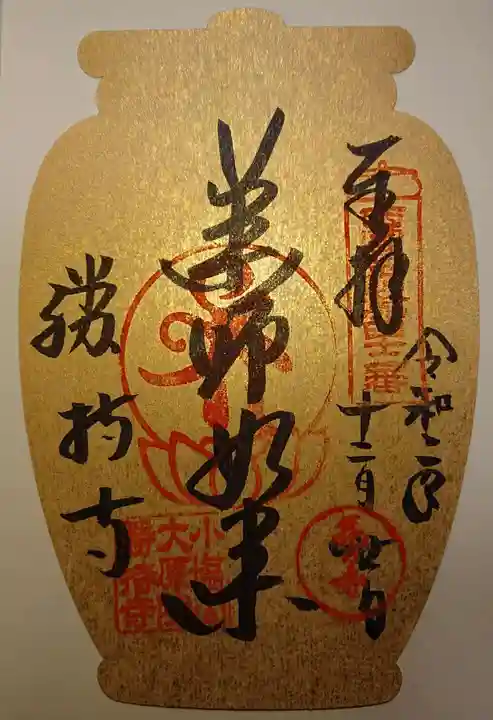 奉拝
令和二年
十二月
薬師如来
勝持寺
小塩山
大原院
勝持寺